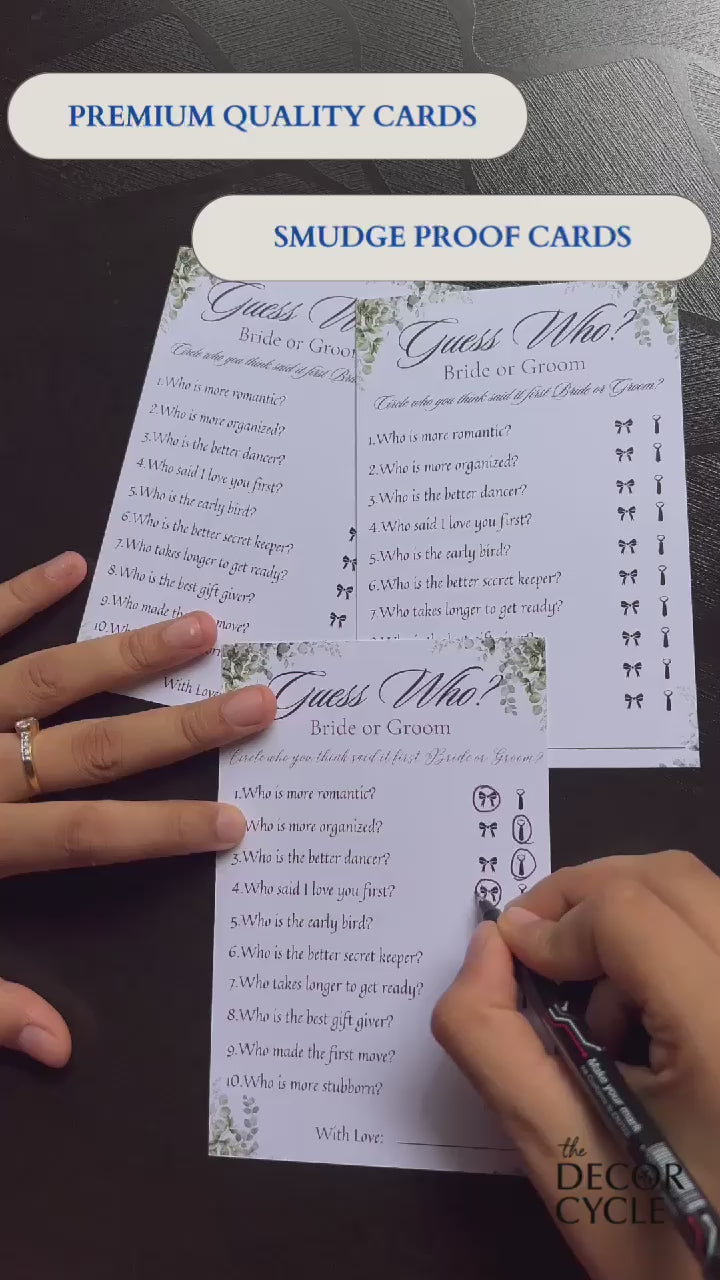 PREMIUM QUALITY CARDS
SMUDGE PROOF CARDS
Guess W
Bride or Groo
Circle who you think said it first Bri
1.Who is more romantic?
2.Who is more organized?
3.Who is the better dancer?
4.Who said I love you first?
5.Who is the early bird?
6.Who is the better secret keeper?
7.Who takes longer to get ready?
8.Who is the best gift giver?
9.Who made th move?
10.Wh
With Love
Guess Who?
Bride or Groom
Circle who you think said it first Bride or Groom?
1.Who is more romantic?
2.Who is more organized?
3.Who is the better dancer?
4.Who said I love you first?
5.Who is the early bird?
6.Who is the better secret keeper?
7.Who takes longer to get ready?
Guess Who?
Bride or Groom
Circle who you think said it first Bride or Groom?
1.Who is more romantic?
Who is more organized?
3.Who is the better dancer?
4.Who said I love you first?
5.Who is the early bird?
6.Who is the better secret keeper?
7.Who takes longer to get ready?
8.Who is the best gift giver?
9.Who made the first move?
10.Who is more stubborn?
With Love:
Make your mark
the
DECOR
CYCLE